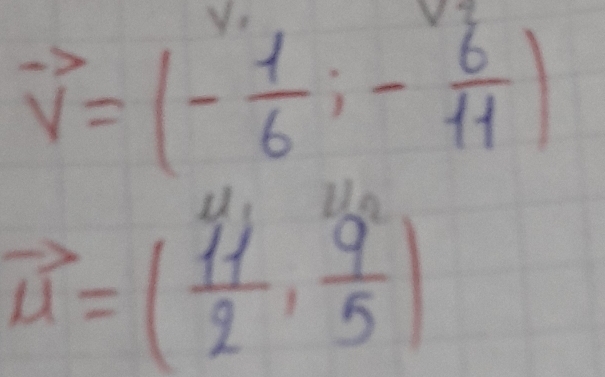 v₁ v₂
v⃗ = (- 1/6 ; - 6/11)
u₁ u₂
u⃗ = (11/2 , 9/5)